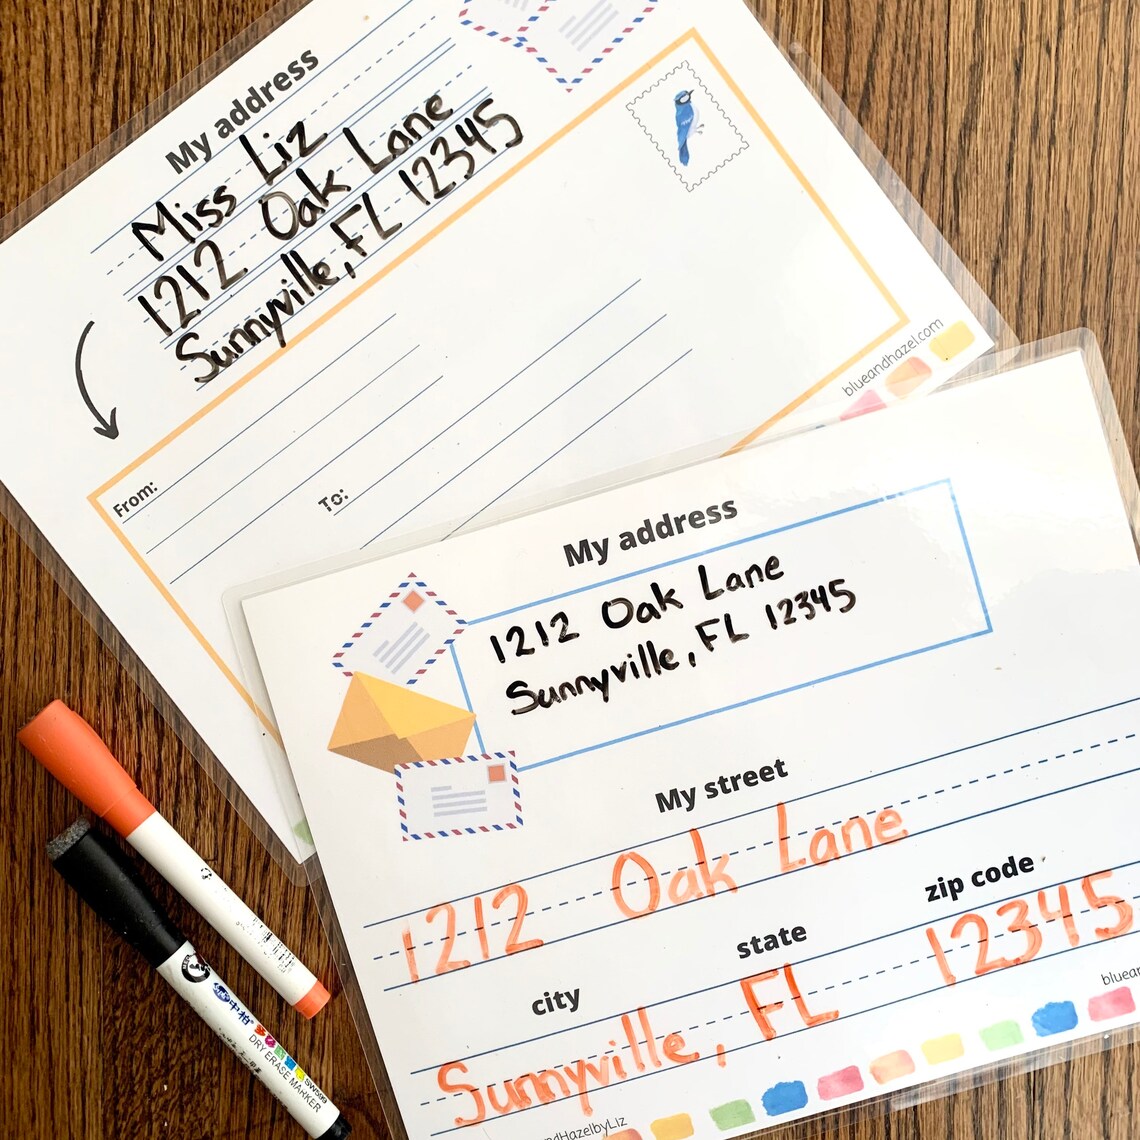 My address
Miss Liz
1212 Oak Lane
Sunnyville, FL 12345
From:
To:
blueandhazel.com
My address
1212 Oak Lane
Sunnyville, FL 12345
My street
1212 Oak Lane
city
state
zip code
Sunnyville, FL 12345
bluean
ndHazelbyLiz
中柏
DRY ERASE MARKER